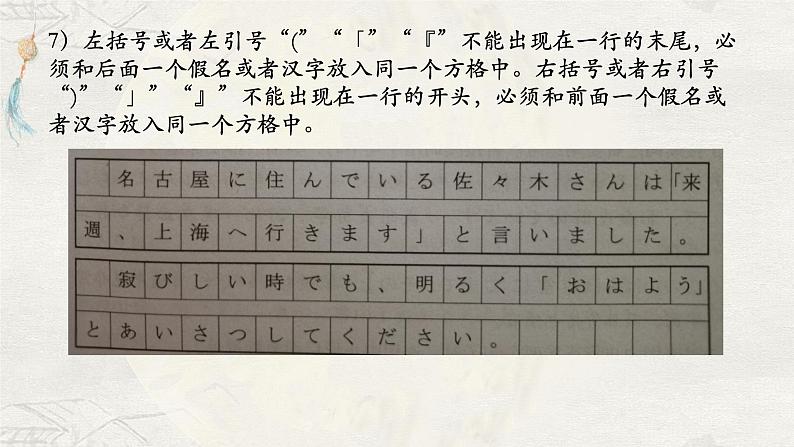 7）左括号或者左引号“(”“「”“『”不能出现在一行的末尾，必
须和后面一个假名或者汉字放入同一个方格中。右括号或者右引号
“)”“」”“』”不能出现在一行的开头，必须和前面一个假名或
者汉字放入同一个方格中。
名古屋に住んでいる佐々木さんは「来
週、上海へ行きます」と言いました。
寂びしい時でも、明るく「おはよう」
とあいさつしてください。